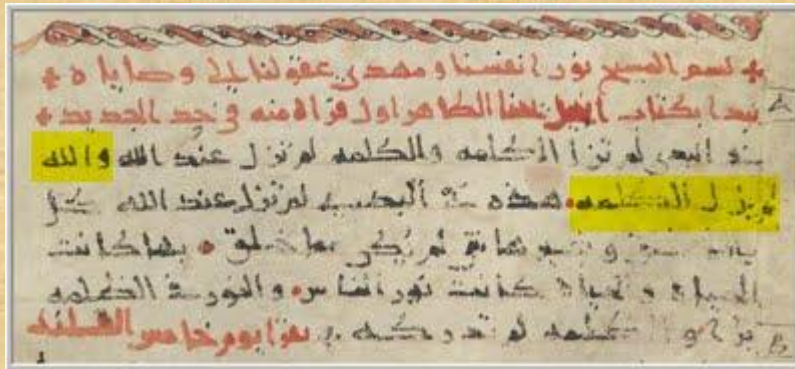 + بسم المسيح نور انفسنا ومهدي عقولنا الى وصاياه +
نبدا بكتاب انجيل يحنا الطاهر اول قراه منه في حد الجديد +
البدي لم تزل الكلمه والكلمه لم تزل عند الله والله
لم يزل الكلمه • هذه في البدي لم تزل عند الله كل
بها كانت
الحياه والحياه كانت نور الناس • والنور في الظلمه
الظلمه لم تدركه يقرا يوم خامس